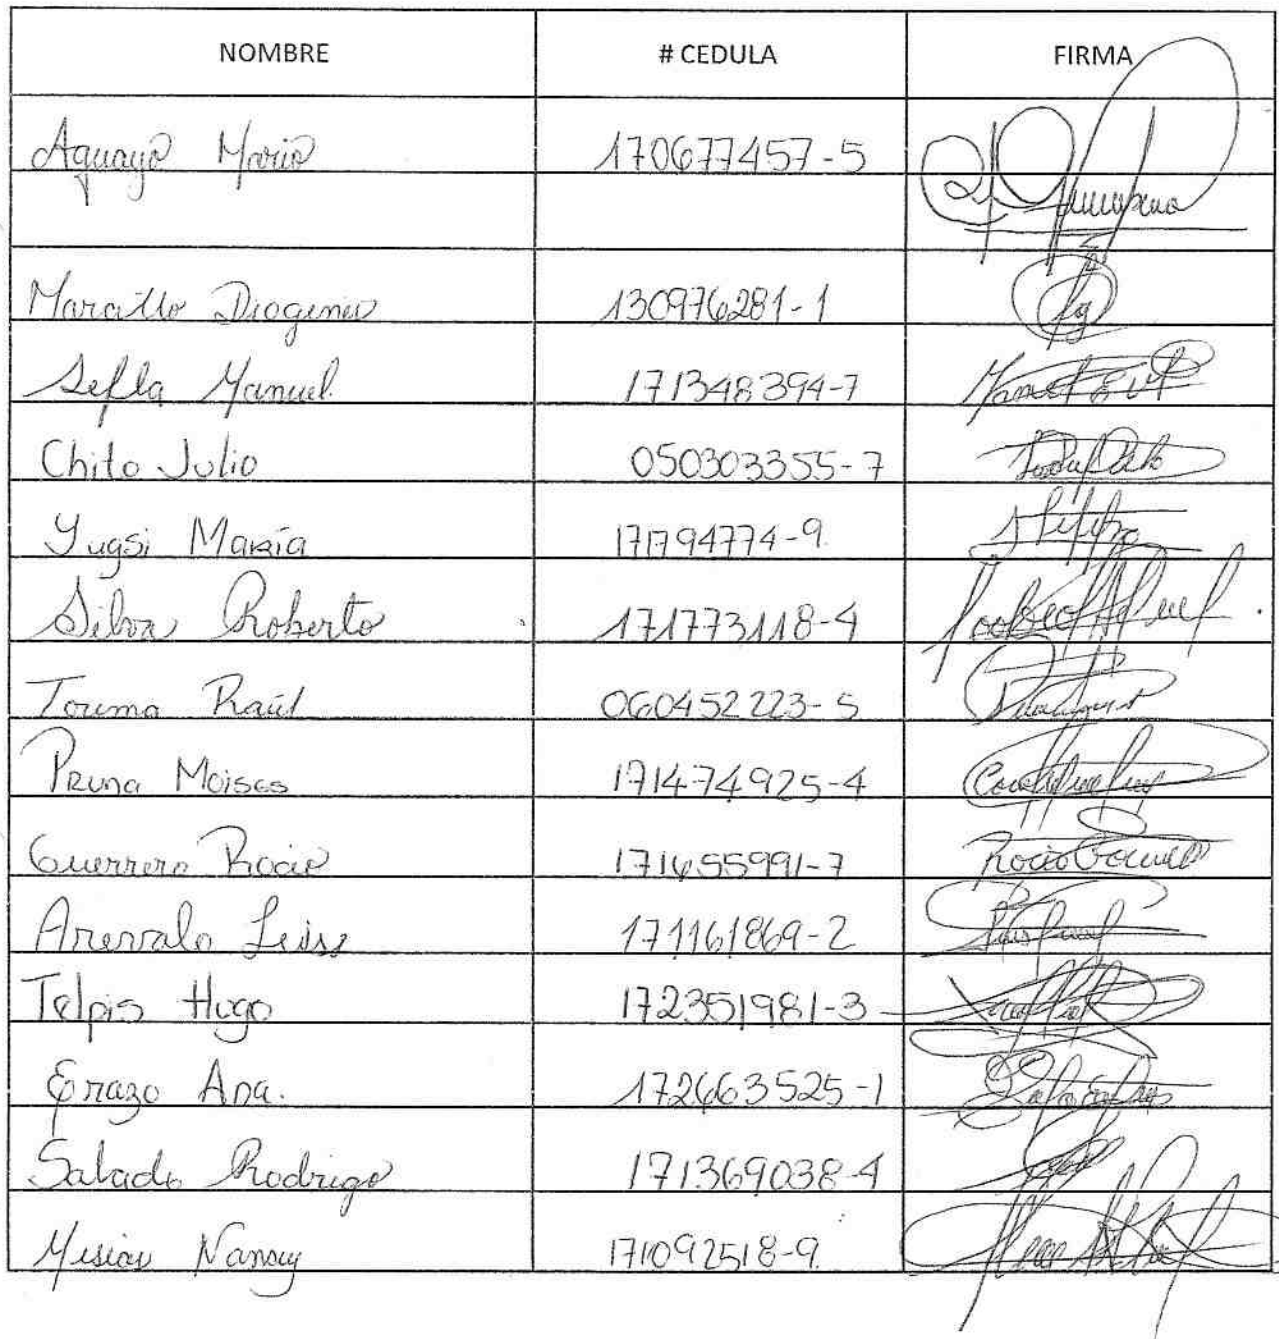 NOMBRE # CEDULA FIRMA
Aguayo Mario 170677457-5
Marcillo Diogenes 130976281-1
Sefla Manuel. 171348394-7
Chito Julio 050303355-7
Yugsi María 171794774-9.
Silva Roberto 171773118-4
Touma Raúl 060452223-5
Pruna Moises 171474925-4
Guerrero Rocio 171655991-7 Rocio
Arevalo Luis 171161869-2
Telpis Hugo 172351981-3
Erazo Ana. 172663525-1
Salado Rodrigo 171369038-4
Misias Nancy 171092518-9.